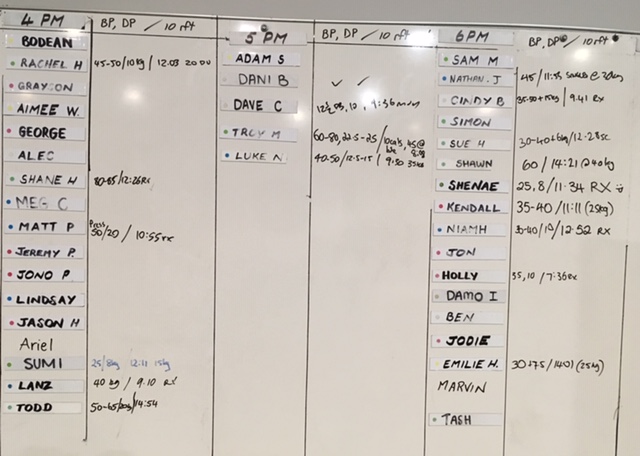 4 PM BP, DP / 10 rft
BODEAN
RACHEL H 45-50/10kg / 12:03
GRAYSON
AIMEE W.
GEORGE
ALEC
SHANE H 80-85/12:26RX
MEG C
MATT P Press 50/20 / 10:55rx
JEREMY P.
JONO P
LINDSAY
JASON H
Ariel
SUMI 25/8kg 12:11 15kg
LANZ 40 kg / 9.10 RX
TODD 50-65/20kg/14:54
5 PM BP, DP / 10 rft
ADAM S
DANI B ✓ ✓
DAVE C
TROY M 60-80, 22.5-25 /
LUKE N 40-50/12.5-15 / 9:50
6PM BP, DP / 10 rft
SAM M
NATHAN. J 45 / 11:55
CINDY B 35-50+15kg / 9.41 RX
SIMON
SUE H 30-40+6kg/12:28sc
SHAWN 60 / 14:21 @40kg
SHENAE 25, 8 / 11:34 RX
KENDALL 35-40 / 11:11 (25kg)
NIAMH 35-40/10/12:52 RX
JON
HOLLY 35, 10 / 7:36rx
DAMO I
BEN
JODIE
EMILIE H. 30+7.5 / 14:01 (25kg)
MARVIN
TASH